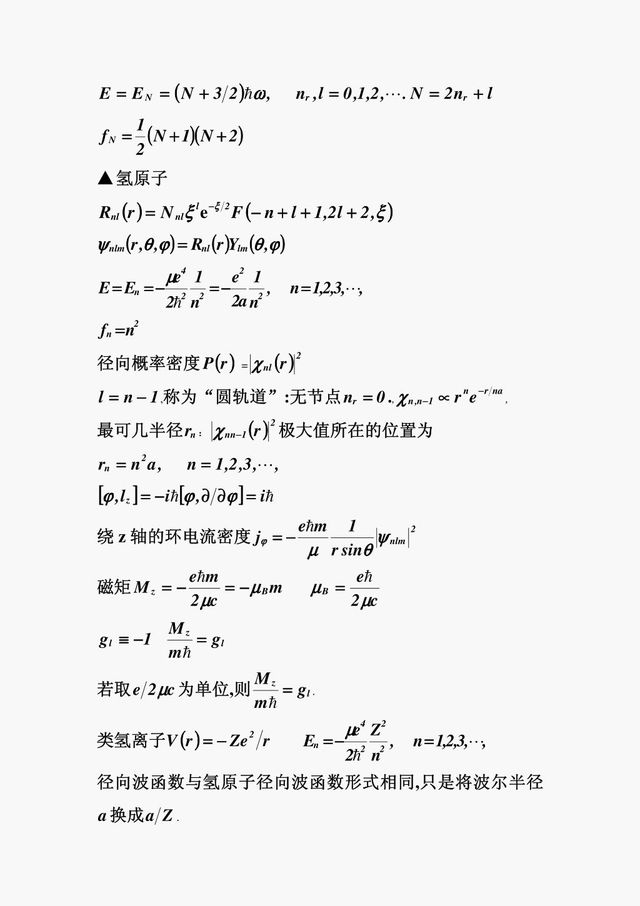 E = E_N = (N + 3/2)ħω,  n_r, l = 0,1,2,⋯. N = 2n_r + l
f_N = 1/2 (N+1)(N+2)
▲氢原子
R_nl(r) = N_nl ξ^l e^{-ξ/2} F(-n + l + 1, 2l + 2, ξ)
ψ_nlm(r,θ,φ) = R_nl(r)Y_lm(θ,φ)
E = E_n = -\frac{μe^4}{2ħ^2} \frac{1}{n^2} = -\frac{e^2}{2a} \frac{1}{n^2},  n=1,2,3,⋯,
f_n = n^2
径向概率密度 P(r) = |χ_nl(r)|^2
l = n - 1,称为“圆轨道”:无节点 n_r = 0., χ_{n,n-1} ∝ r^n e^{-r/na},
最可几半径 r_n: |χ_{nn-1}(r)|^2 极大值所在的位置为
r_n = n^2 a,  n = 1,2,3,⋯,
[φ,l_z] = -iħ[φ,∂/∂φ] = iħ
绕 z 轴的环电流密度 j_φ = -\frac{eħm}{μ} \frac{1}{r sinθ} |ψ_nlm|^2
磁矩 M_z = -\frac{eħm}{2μc} = -μ_B m  μ_B = \frac{eħ}{2μc}
g_l ≡ -1  \frac{M_z}{mħ} = g_l
若取 e/2μc 为单位,则 \frac{M_z}{mħ} = g_l.
类氢离子 V(r) = -Ze^2/r  E_n = -\frac{μe^4}{2ħ^2} \frac{Z^2}{n^2},  n=1,2,3,⋯,
径向波函数与氢原子径向波函数形式相同,只是将波尔半径
a 换成 a/Z.